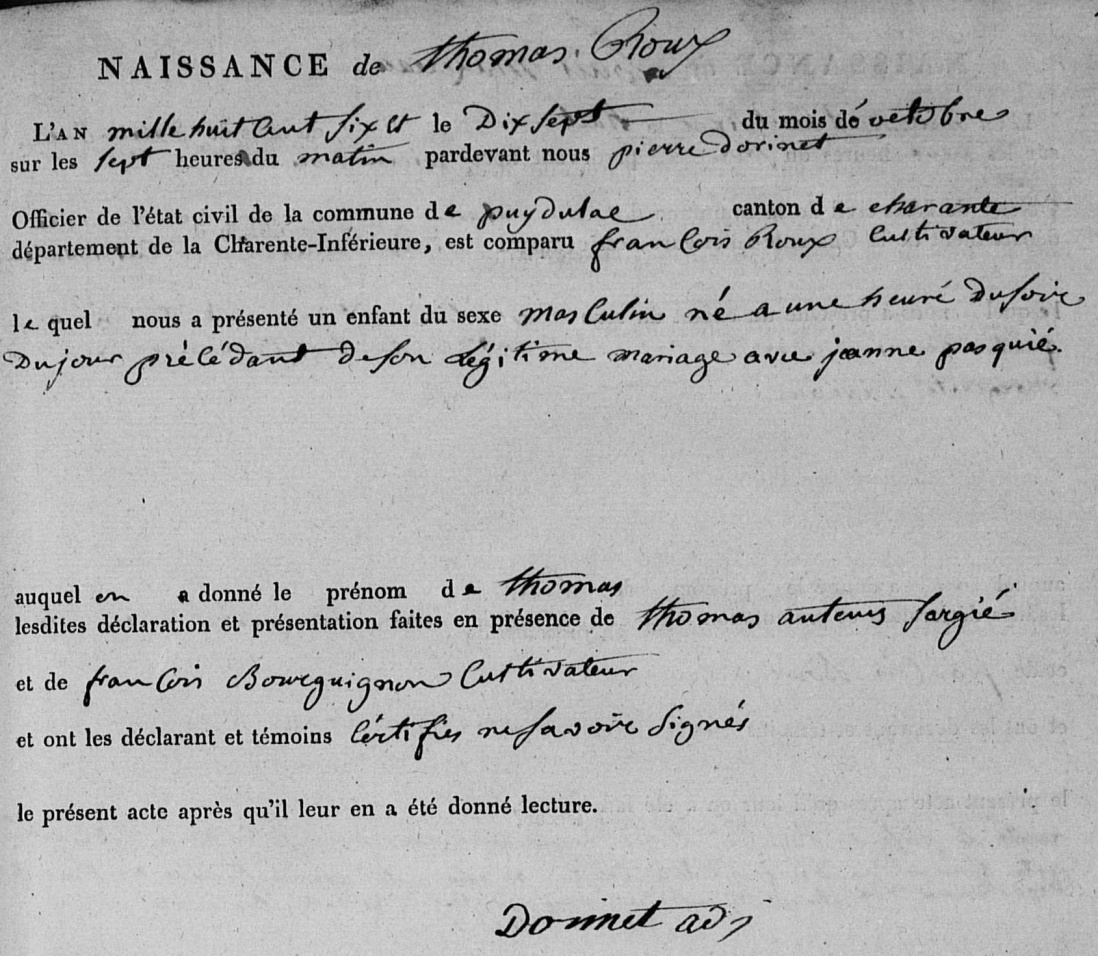 NAISSANCE de thomas Roux
L'AN mille huit Cent Six et le Dix Sept du mois dé octobre
sur les Sept heures du matin pardevant nous pierre Dorinet
Officier de l'état civil de la commune de puydulac canton de charante
département de la Charente-Inférieure, est comparu franCois Roux Cultivateur
le quel nous a présenté un enfant du sexe masCulin né a une heuré Du Soir
Du jour précédant de Son Légitime mariage avec jeanne pasquié
auquel en a donné le prénom de thomas
lesdites déclaration et présentation faites en présence de thomas
et de franCois Bourguignon Cultivateur
et ont les déclarant et témoins Cértifiés ne Savoir Signés
le présent acte après qu'il leur en a été donné lecture.
Dorinet adj